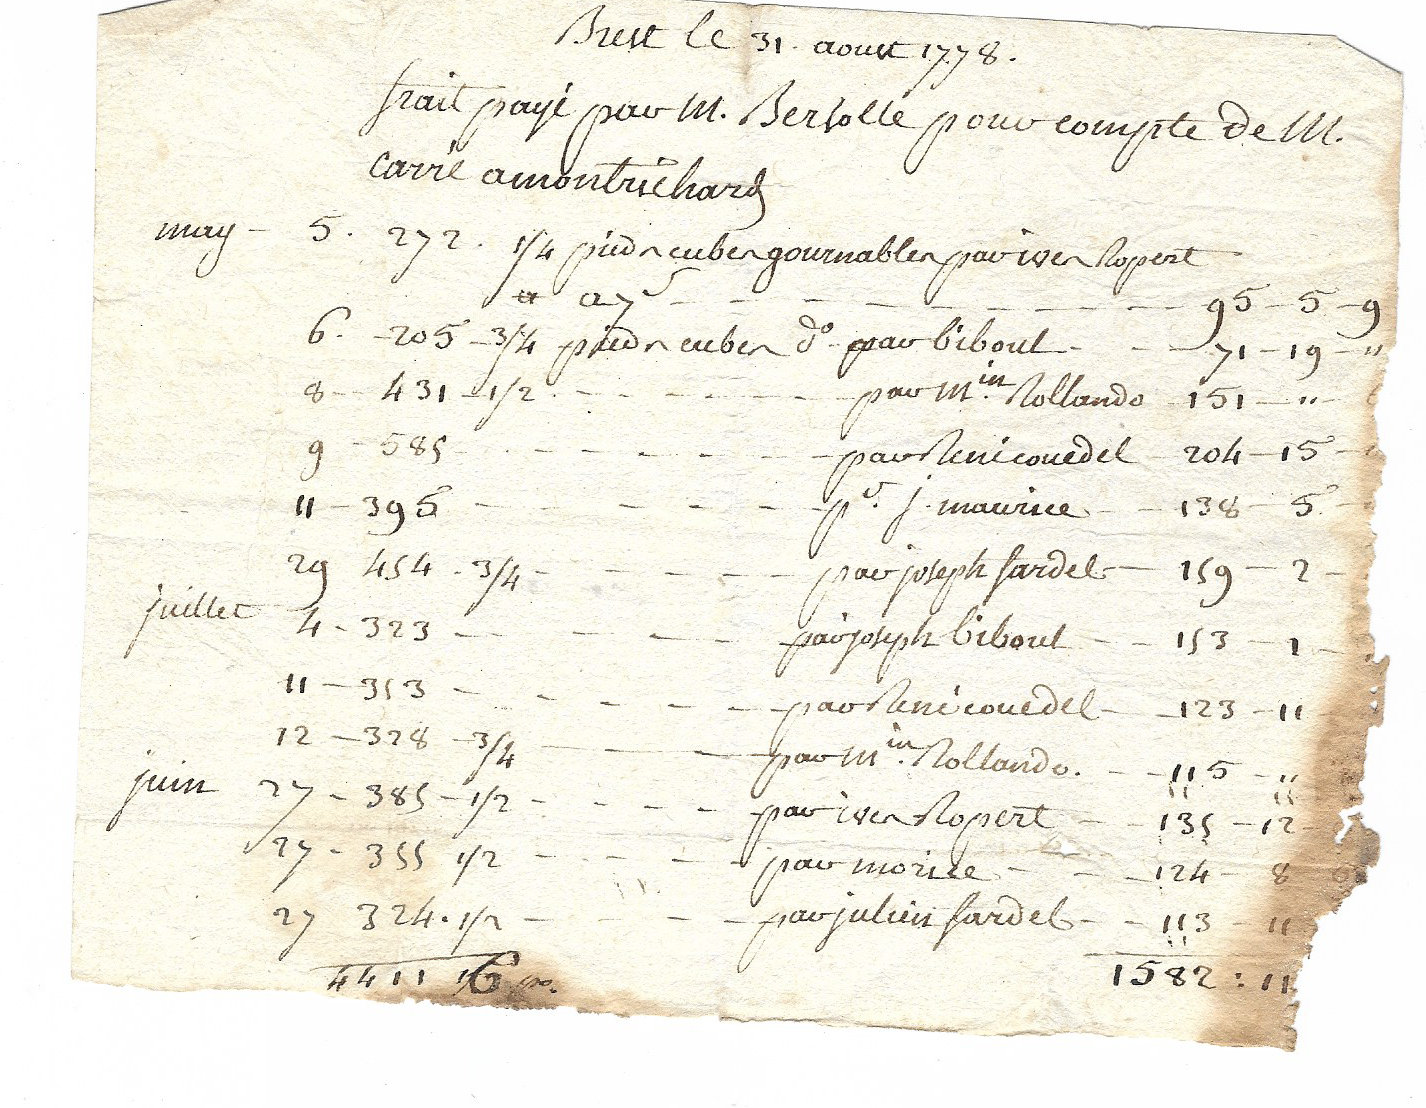 Brest le 31. aoust 1778.
frait payé par M. Bersolle pour compte de M.
Carré a montrichard
may - 5. 272. 1/4 pieds cubes gournables par ives Ropert
a 7s - - - - - - - 95 - 5 - 9
6. - 205 - 3/4 pieds cubes do par bibout - - 71 - 19 - "
8 - 431 - 1/2 - - - - - par Min. Rollando 151 - " -
9 - 585 - - - - - - par René couedel 204 - 15 -
11 - 395 - - - - - - pr. j. maurice - - 138 - 5 -
29 454 - 3/4 - - - - - par joseph fardel - 159 - 2 -
juillet 4 - 323 - - - - par joseph bibout - - 153 - 1 -
11 - 353 - - - - - par René couedel - - 123 - 11
12 - 328 - 3/4 - - - par Min. Rollando. - - 115 - "
juin 27 - 385 - 1/2 - - - - par ives Ropert - - 135 - 12 -
27 - 355 1/2 - - - - par morice - - - 124 - 8
27 324 - 1/2 - - - - par julien fardel - - 113 - 11
4411 1582 : 11